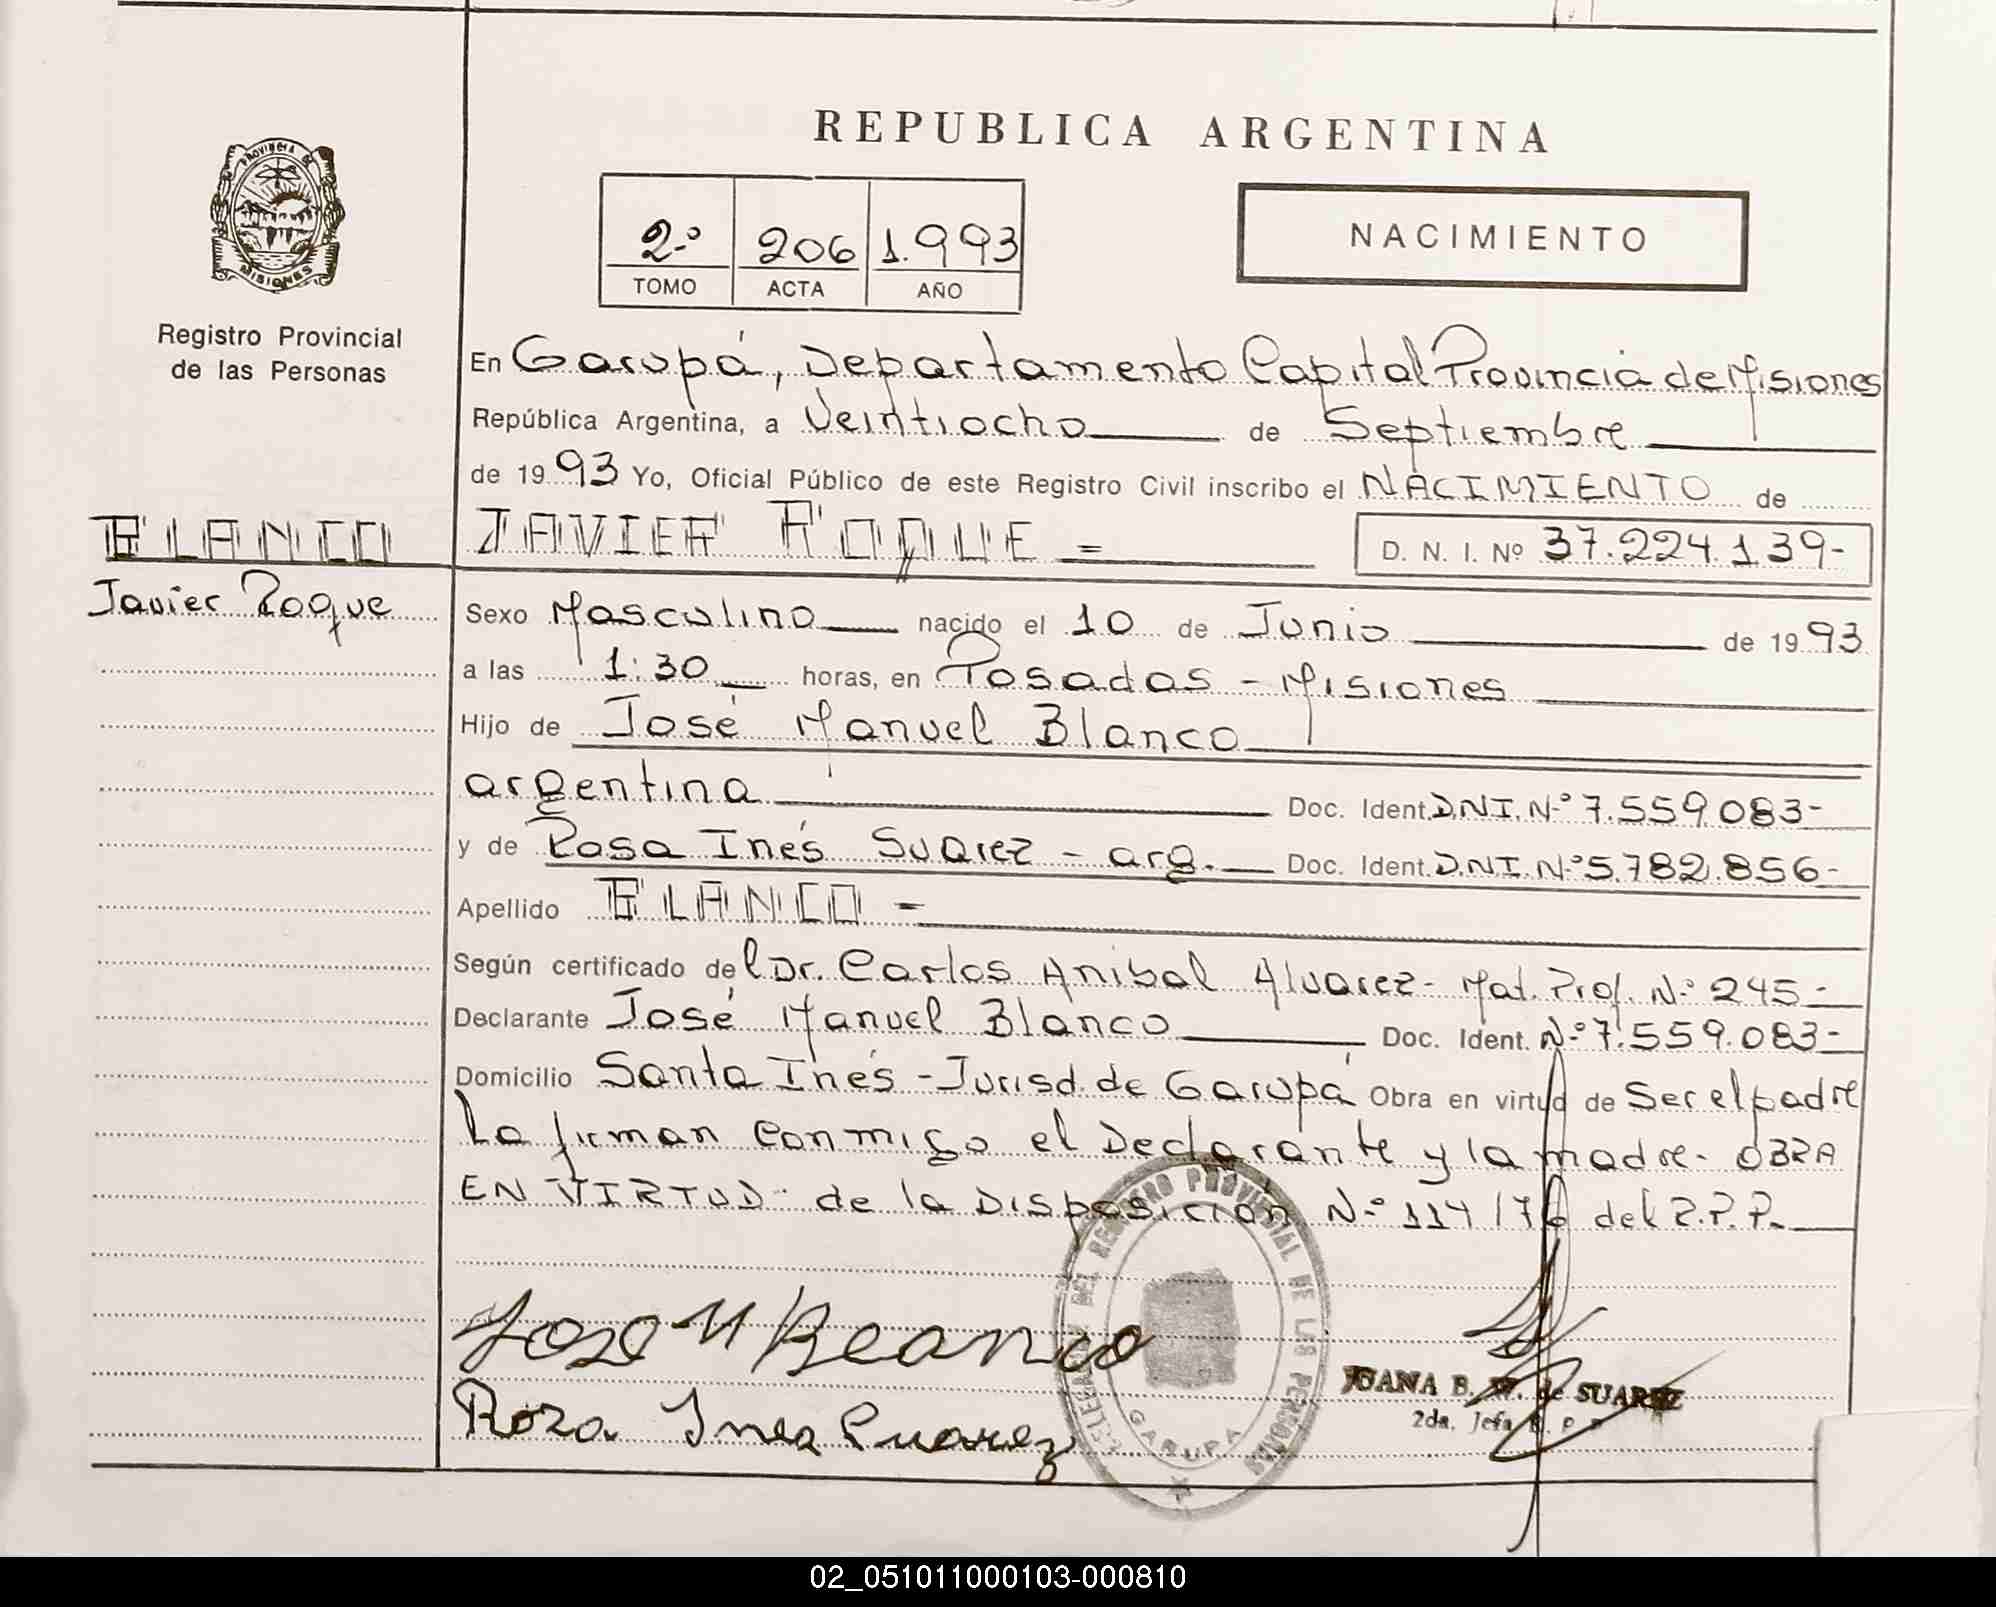 REPUBLICA ARGENTINA
PROVINCIA DE
MISIONES
Registro Provincial
de las Personas
2º 206 1.993
TOMO ACTA AÑO
NACIMIENTO
En Garupá, Departamento Capital Provincia de Misiones
República Argentina, a Veintiocho de Septiembre
de 1993 Yo, Oficial Público de este Registro Civil inscribo el NACIMIENTO de
BLANCO
JAVIER ROQUE =
D. N. I. Nº 37.224.139-
Javier Roque
Sexo Masculino nacido el 10 de Junio de 1993
a las 1:30 horas, en Posadas - Misiones
Hijo de José Manuel Blanco
argentina Doc. Ident. D.N.I. Nº 7.559.083-
y de Rosa Inés Suarez - arg. Doc. Ident. D.N.I. Nº 5.782.856-
Apellido BLANCO =
Según certificado del Dr. Carlos Anibal Alvarez - Mat. Prof. Nº 245-
Declarante José Manuel Blanco Doc. Ident. Nº 7.559.083-
Domicilio Santa Inés - Jurisd. de Garupá Obra en virtud de Ser el padre
La firman conmigo el Declarante y la madre - OBRA
EN VIRTUD de la Disposición Nº 114/76 del R.P.P.
DELEGACION DEL REGISTRO PROVINCIAL DE LAS PERSONAS
GARUPA
Jose M Blanco
Roza Ines Suarez
JUANA B. de SUAREZ
2da. Jefa
02_051011000103-000810